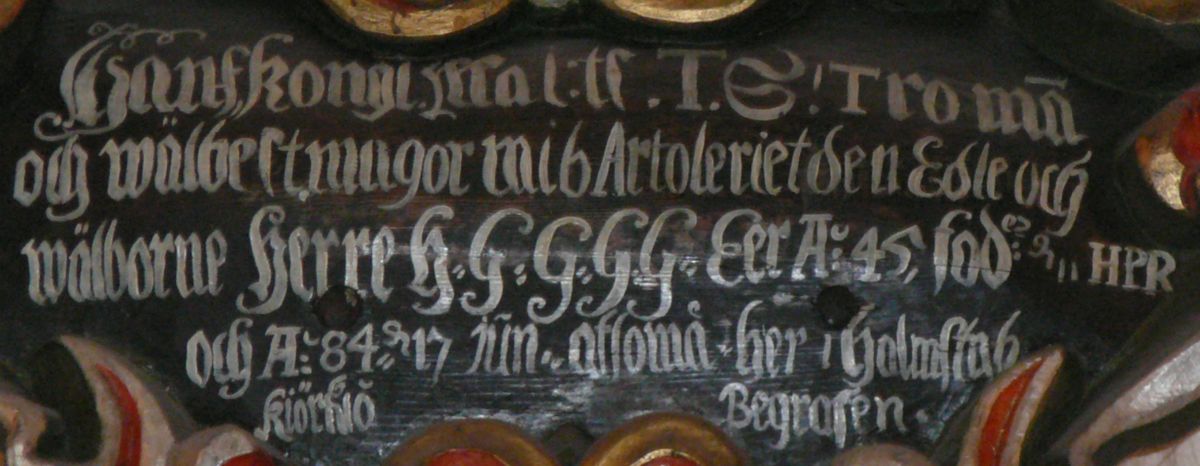 Hans kongl. Ma l:tſ . T. S! Tro mā
och wälbeſt. mugor mib Artoleriet den Edle och
wälborne Herre H: G: G: G: G: Eer A: 45 fod: HPR
och A: 84 17 jūn: afſomā her i halmſtab
kiörkiō Begrafen.